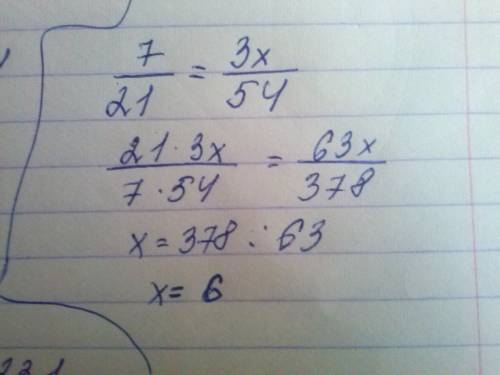 7/21 = 3x/54
21·3x/7·54 = 63x/378
x = 378 : 63
x = 6